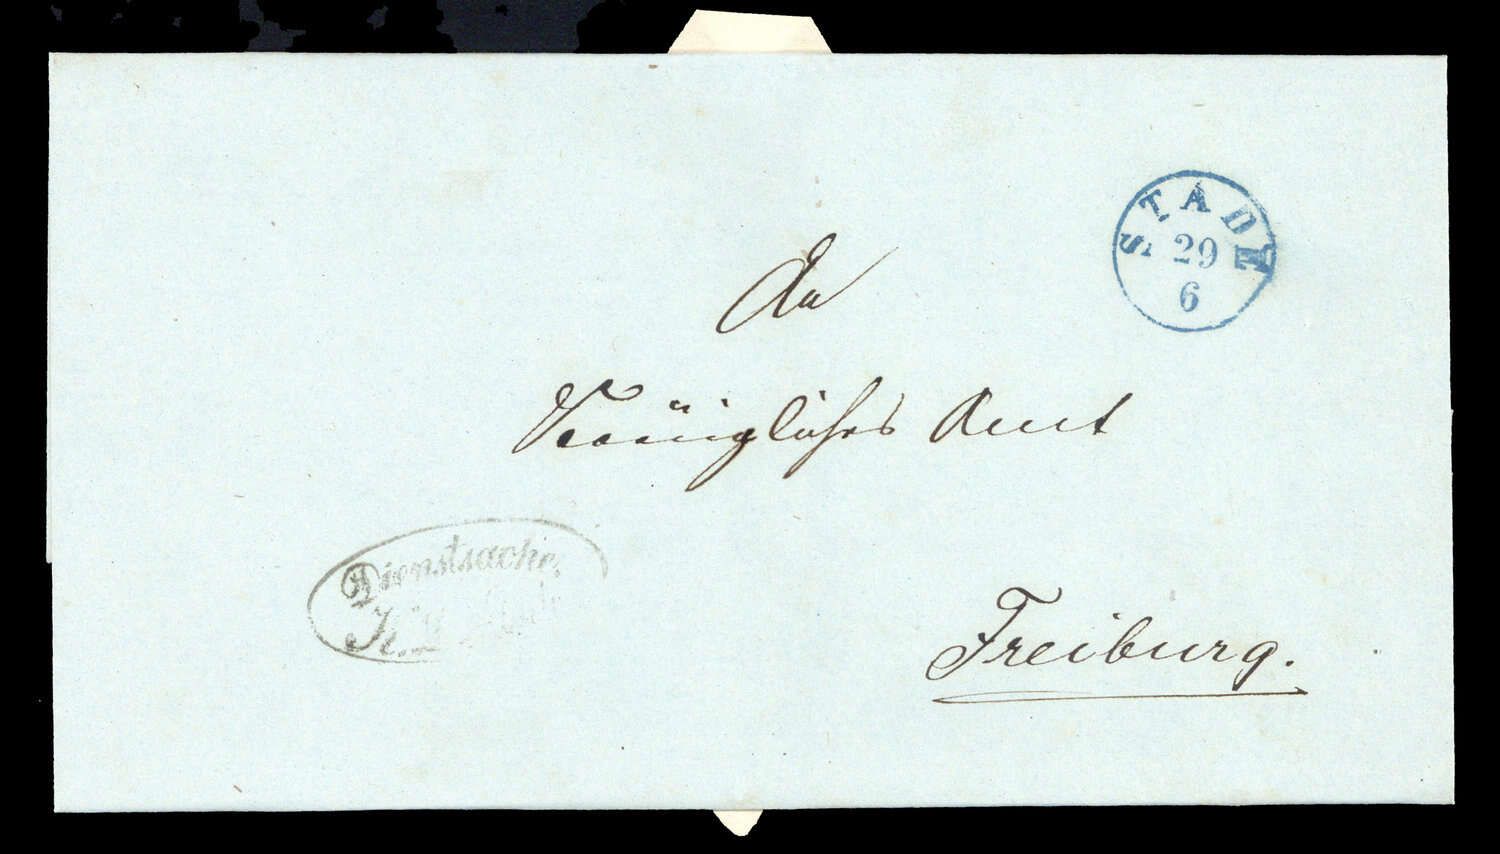 STADE
29
6
An
Königliches Amt
Dienstsache.
K.
Freiburg.